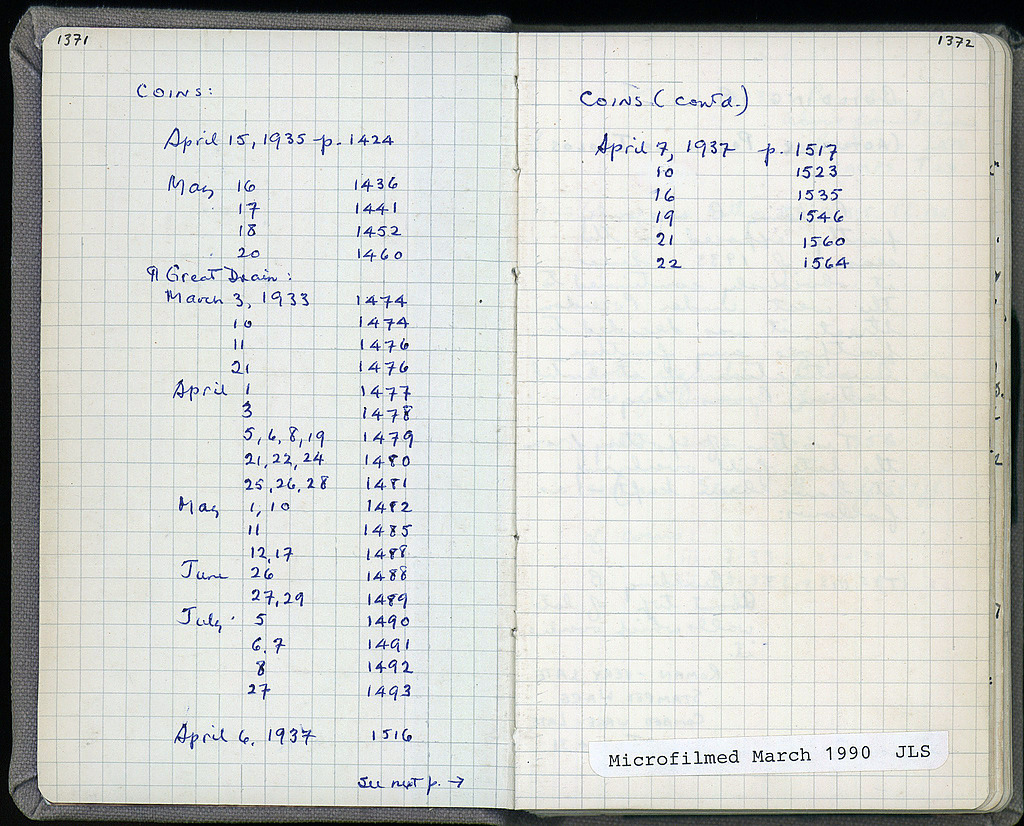 1371
COINS:
April 15, 1935 - p. 1424
May 16 1436
17 1441
18 1452
20 1460
¶ Great Drain:
March 3, 1933 1474
10 1474
11 1476
21 1476
April 1 1477
3 1478
5, 6, 8, 19 1479
21, 22, 24 1480
25, 26, 28 1481
May 1, 10 1482
11 1485
12, 17 1488
June 26 1488
27, 29 1489
July 5 1490
6, 7 1491
8 1492
27 1493
April 6, 1937 1516
See next p. →
1372
COINS (contd.)
April 7, 1937 p. 1517
10 1523
16 1535
19 1546
21 1560
22 1564
Microfilmed March 1990 JLS